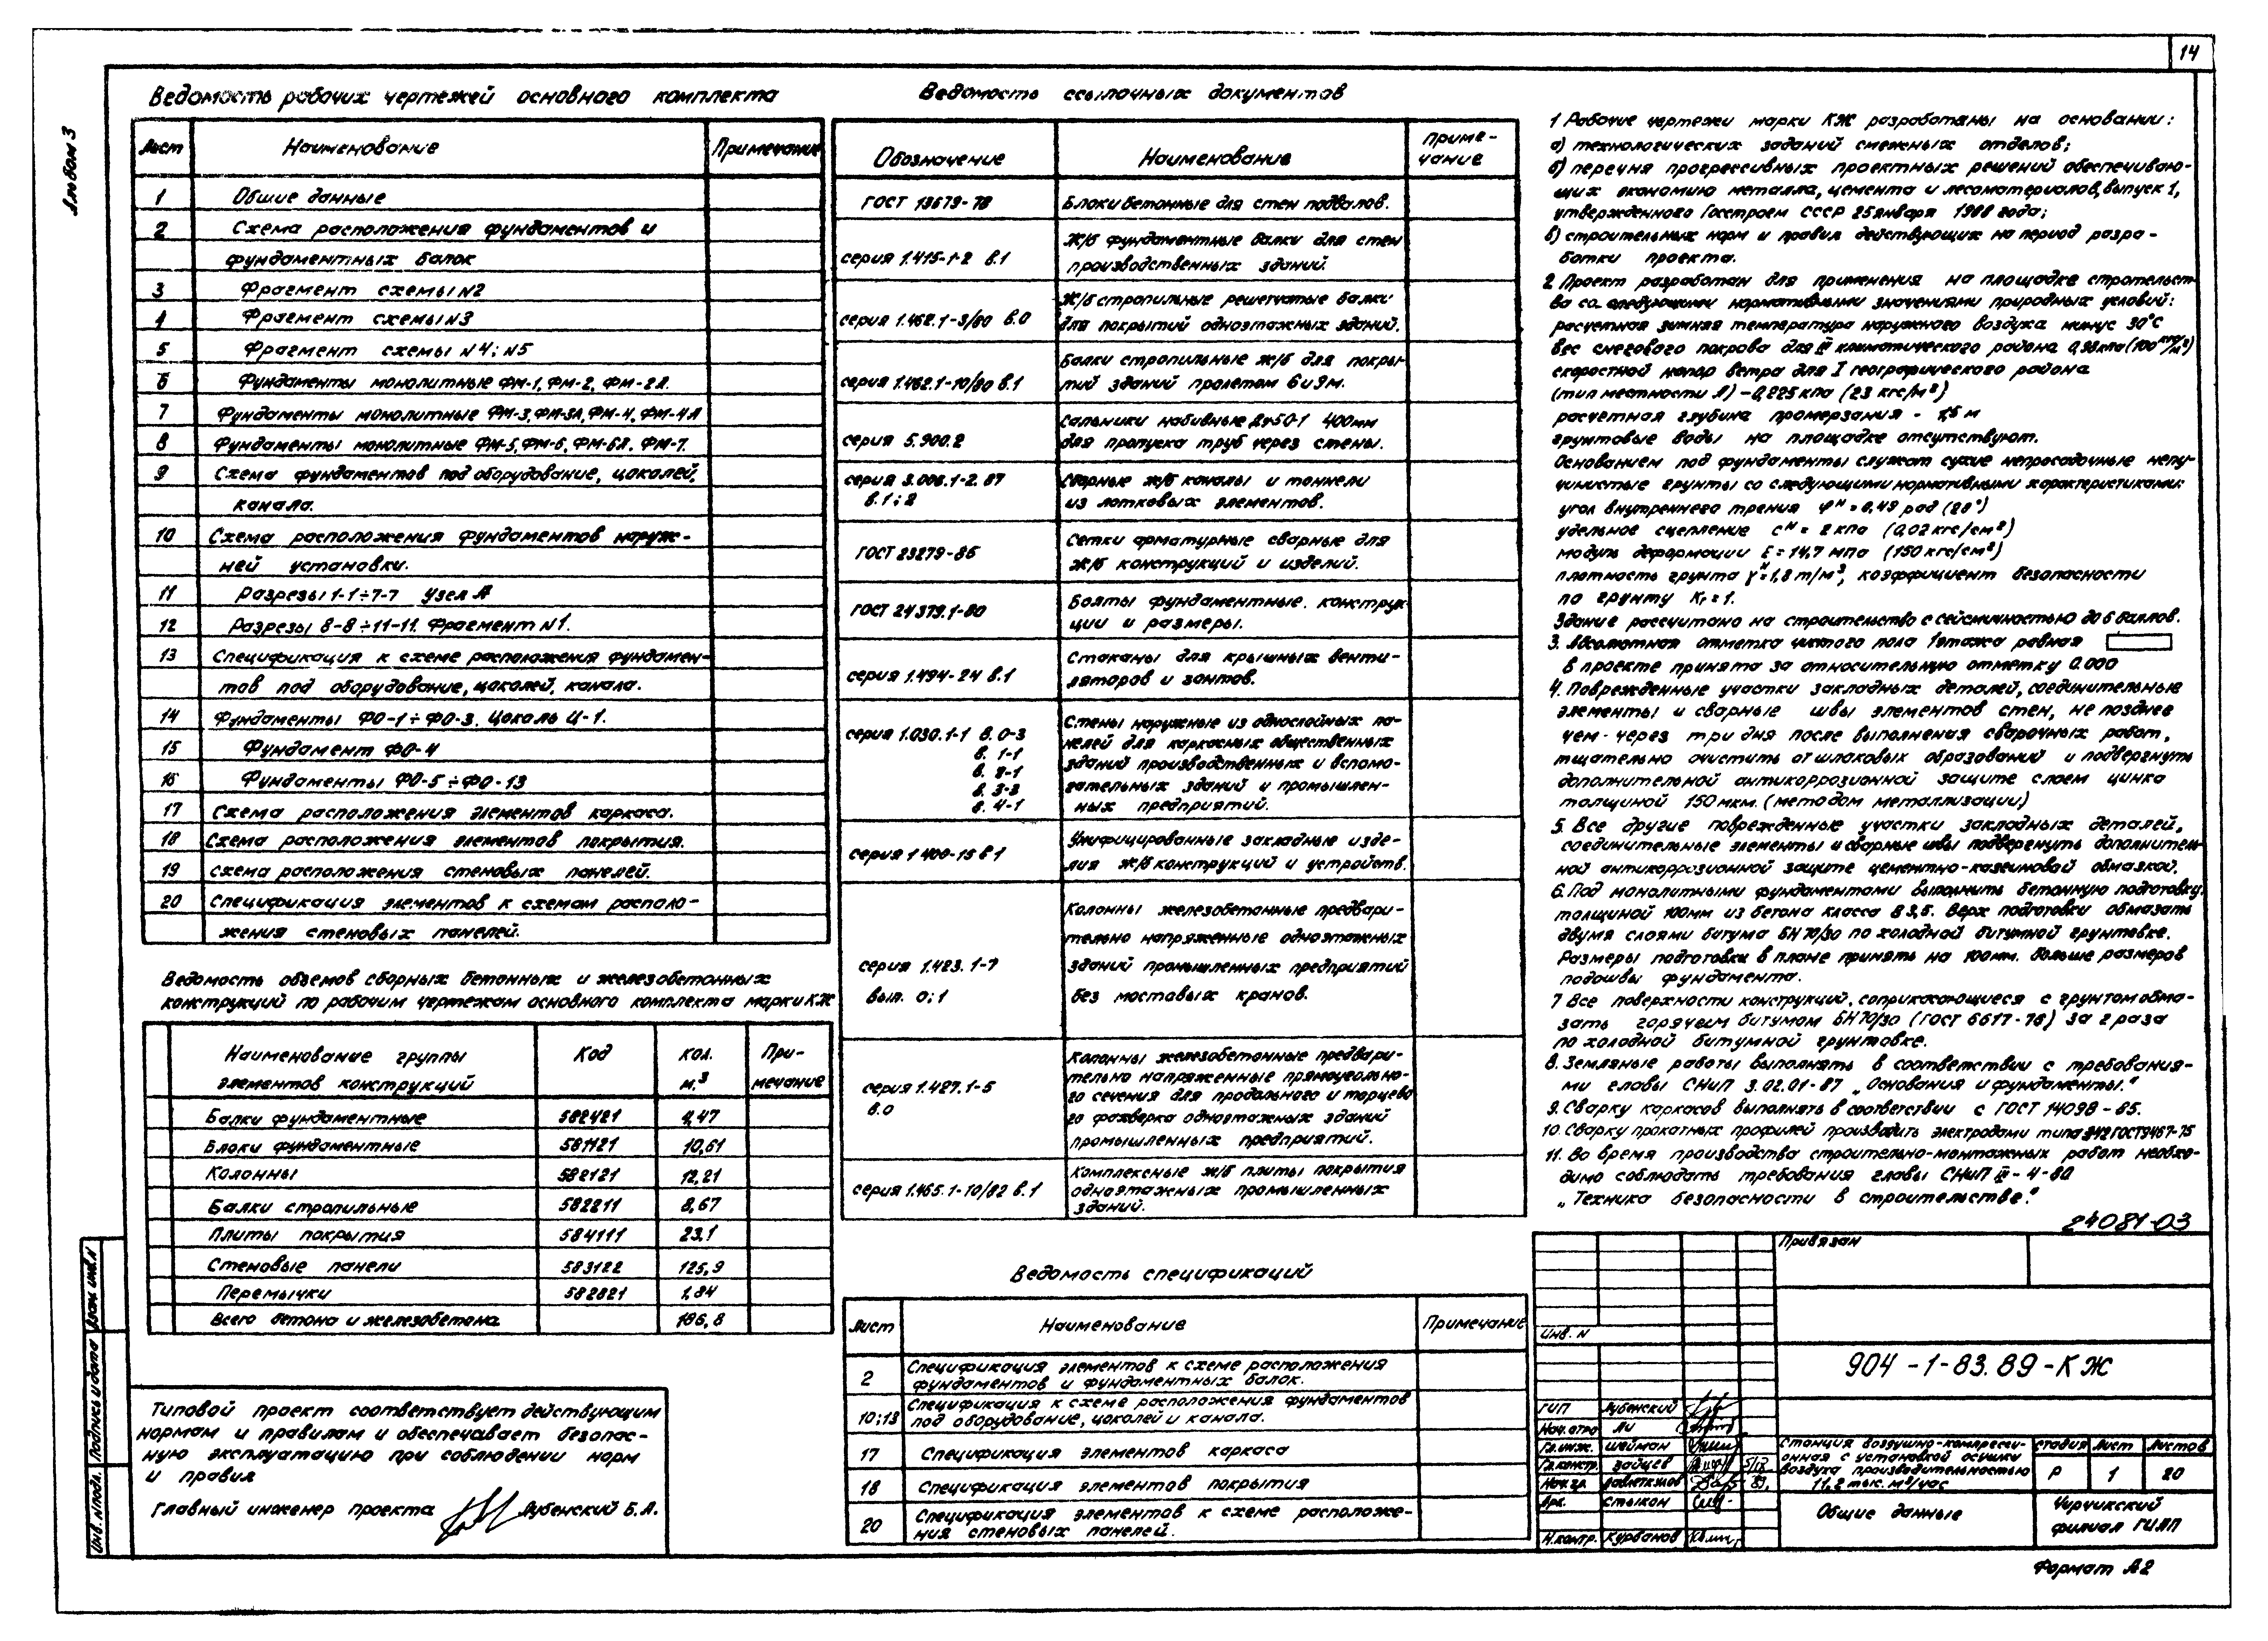 14
Альбом 3
Ведомость рабочих чертежей основного комплекта
Лист Наименование Примечание
1 Общие данные
2 Схема расположения фундаментов и
фундаментных балок
3 Фрагмент схемы N2
4 Фрагмент схемы N3
5 Фрагмент схемы N4; N5
6 Фундаменты монолитные ФМ-1, ФМ-2, ФМ-2А.
7 Фундаменты монолитные ФМ-3, ФМ-3А, ФМ-4, ФМ-4А
8 Фундаменты монолитные ФМ-5, ФМ-6, ФМ-6А, ФМ-7.
9 Схема фундаментов под оборудование, цоколей,
канала.
10 Схема расположения фундаментов наруж-
ней установки.
11 Разрезы 1-1÷7-7 Узел А
12 Разрезы 8-8÷11-11. Фрагмент N1.
13 Спецификация к схеме расположения фундамен-
тов под оборудование, цоколей, канала.
14 Фундаменты ФО-1÷ФО-3. Цоколь Ц-1.
15 Фундамент ФО-4
16 Фундаменты ФО-5÷ФО-13
17 Схема расположения элементов каркаса.
18 Схема расположения элементов покрытия.
19 Схема расположения стеновых панелей.
20 Спецификация элементов к схемам располо-
жения стеновых панелей.
Ведомость объемов сборных бетонных и железобетонных
конструкций по рабочим чертежам основного комплекта марки КЖ
Наименование группы Код кол. При-
элементов конструкций м.³ мечание
Балки фундаментные 582421 4,47
Блоки фундаментные 581121 10,61
Колонны 582121 12,21
Балки стропильные 582211 8,67
Плиты покрытия 584111 23.1
Стеновые панели 583122 125,9
Перемычки 582821 1,84
Всего бетона и железобетона 186,8
Типовой проект соответствует действующим
нормам и правилам и обеспечивает безопас-
ную эксплуатацию при соблюдении норм
и правил
Главный инженер проекта Лубенский Б.А.
Инв. N подл. Подпись и дата Взам. инв. N
Ведомость ссылочных документов
Обозначение Наименование Приме-
чание
ГОСТ 13579-78 Блоки бетонные для стен подвалов.
серия 1.415-1-2 в.1 Ж/б фундаментные балки для стен
производственных зданий.
серия 1.462.1-3/80 в.0 Ж/б стропильные решетчатые балки
для покрытий одноэтажных зданий.
серия 1.462.1-10/80 в.1 Балки стропильные ж/б для покры-
тий зданий пролетом 6 и 9м.
серия 5.900.2 Сальники набивные Ду50-1 400мм
для пропуска труб через стены.
серия 3.006.1-2.87 Сборные ж/б каналы и тоннели
в.1; 2 из лотковых элементов.
ГОСТ 23279-85 Сетки арматурные сварные для
Ж/б конструкций и изделий.
ГОСТ 24379.1-80 Болты фундаментные. конструк-
ции и размеры.
серия 1.494-24 в.1 Стаканы для крышных венти-
ляторов и зонтов.
серия 1.030.1-1 в. 0-3 Стены наружные из однослойных па-
в. 1-1 нелей для каркасных общественных
в. 2-1 зданий производственных и вспомо-
в. 3-3 гательных зданий и промышлен-
в. 4-1 ных предприятий.
серия 1 400-15 в 1 Унифицированные закладные изде-
лия ж/б конструкций и устройств.
Колонны железобетонные предвари-
тельно напряженные одноэтажных
серия 1.423.1-7 зданий промышленных предприятий
вып. 0; 1 без мостовых кранов.
серия 1.427.1-5 Колонны железобетонные предвари-
в.0 тельно напряженные прямоугольно-
го сечения для продольного и торцево
го фахверка одноэтажных зданий
промышленных предприятий.
серия 1.465.1-10/82 в.1 Комплексные ж/б плиты покрытия
одноэтажных промышленных
зданий.
Ведомость спецификаций
Лист Наименование Примечание
2 Спецификация элементов к схеме расположения
фундаментов и фундаментных балок.
10; 13 Спецификация к схеме расположения фундаментов
под оборудование, цоколей и канала.
17 Спецификация элементов каркаса
18 Спецификация элементов покрытия
20 Спецификация элементов к схеме расположе-
ния стеновых панелей.
1 Рабочие чертежи марки КЖ разработаны на основании:
а) технологических заданий смежных отделов;
б) перечня прогрессивных проектных решений обеспечиваю-
щих экономию металла, цемента и лесоматериалов, выпуск 1,
утвержденного Госстроем СССР 25 января 1988 года;
в) строительных норм и правил действующих на период разра-
ботки проекта.
2 Проект разработан для применения на площадке строительст-
ва со следующими нормативными значениями природных условий:
расчетная зимняя температура наружного воздуха минус 30°С
вес снегового покрова для III климатического района 0,98 кпа (100 кгс/м²)
скоростной напор ветра для I географического района
(тип местности А) - 0,225 кпа (23 кгс/м²)
расчетная глубина промерзания - 1,5 м
грунтовые воды на площадке отсутствуют.
Основанием под фундаменты служат сухие непросадочные непу-
чинистые грунты со следующими нормативными характеристиками:
угол внутреннего трения φᴴ = 0,49 рад (28°)
удельное сцепление сᴴ = 2 кпа (0,02 кгс/см²)
модуль деформации Е = 14,7 мпа (150 кгс/см²)
плотность грунта γᴴ = 1,8 т/м³, коэффициент безопасности
по грунту Кг = 1.
Здание рассчитано на строительство с сейсмичностью до 6 баллов.
3. Абсолютная отметка чистого пола 1 этажа равная
в проекте принята за относительную отметку 0.000
4. Поврежденные участки закладных деталей, соединительные
элементы и сварные швы элементов стен, не позднее
чем - через три дня после выполнения сварочных работ,
тщательно очистить от шлаковых образований и подвергнуть
дополнительной антикоррозионной защите слоем цинка
толщиной 150 мкм. (методом металлизации)
5. Все другие поврежденные участки закладных деталей,
соединительные элементы и сварные швы подвергнуть дополнитель-
ной антикоррозионной защите цементно-казеиновой обмазкой.
6. Под монолитными фундаментами выполнить бетонную подготовку
толщиной 100мм из бетона класса В 3,5. Верх подготовки обмазать
двумя слоями битума БН 70/30 по холодной битумной грунтовке.
Размеры подготовки в плане принять на 100мм. больше размеров
подошвы фундамента.
7 Все поверхности конструкций, соприкасающиеся с грунтом обма-
зать горячим битумом БН 70/30 (ГОСТ 6617-76) за 2 раза
по холодной битумной грунтовке.
8. Земляные работы выполнять в соответствии с требования-
ми главы СНиП 3.02.01-87 „Основания и фундаменты."
9. Сварку каркасов выполнять в соответствии с ГОСТ 14098-85.
10. Сварку прокатных профилей производить электродами типа Э42 ГОСТ9467-75
11. Во время производства строительно-монтажных работ необхо-
димо соблюдать требования главы СНиП III-4-80
„Техника безопасности в строительстве."
24081-03
Привязан
Инв. N
904-1-83.89-КЖ
ГИП Лубенский
Нач. отд Ли
Гл. инж. Шейман
Гл. констр. Зайцев
Нач. гр.
Арх. Стыкон
Н. контр. Курбанов
Станция воздушно-компресси-
онная с установкой осушки
воздуха производительностью
11,2 тыс. м³/час
стадия Лист Листов
Р 1 20
Общие данные
Чирчикский
филиал ГИАП
Формат А2